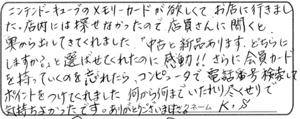 ニンテンドーキューブのメモリーカードが欲しくてお店に行きまし
た。店内には探せなかったので店員さんに聞くと、
裏から出してきてくれました。「中古と新品あります。どちらに
しますか。」と選ばせてくれたのに感動!!さらに会員カード
を持っていくのを忘れたら、コンピュータで電話番号検索して
ポイントをつけてくれました。何から何までいたれり尽くせりで
気持ちよかったです。ありがとうございました。ネーム K.S